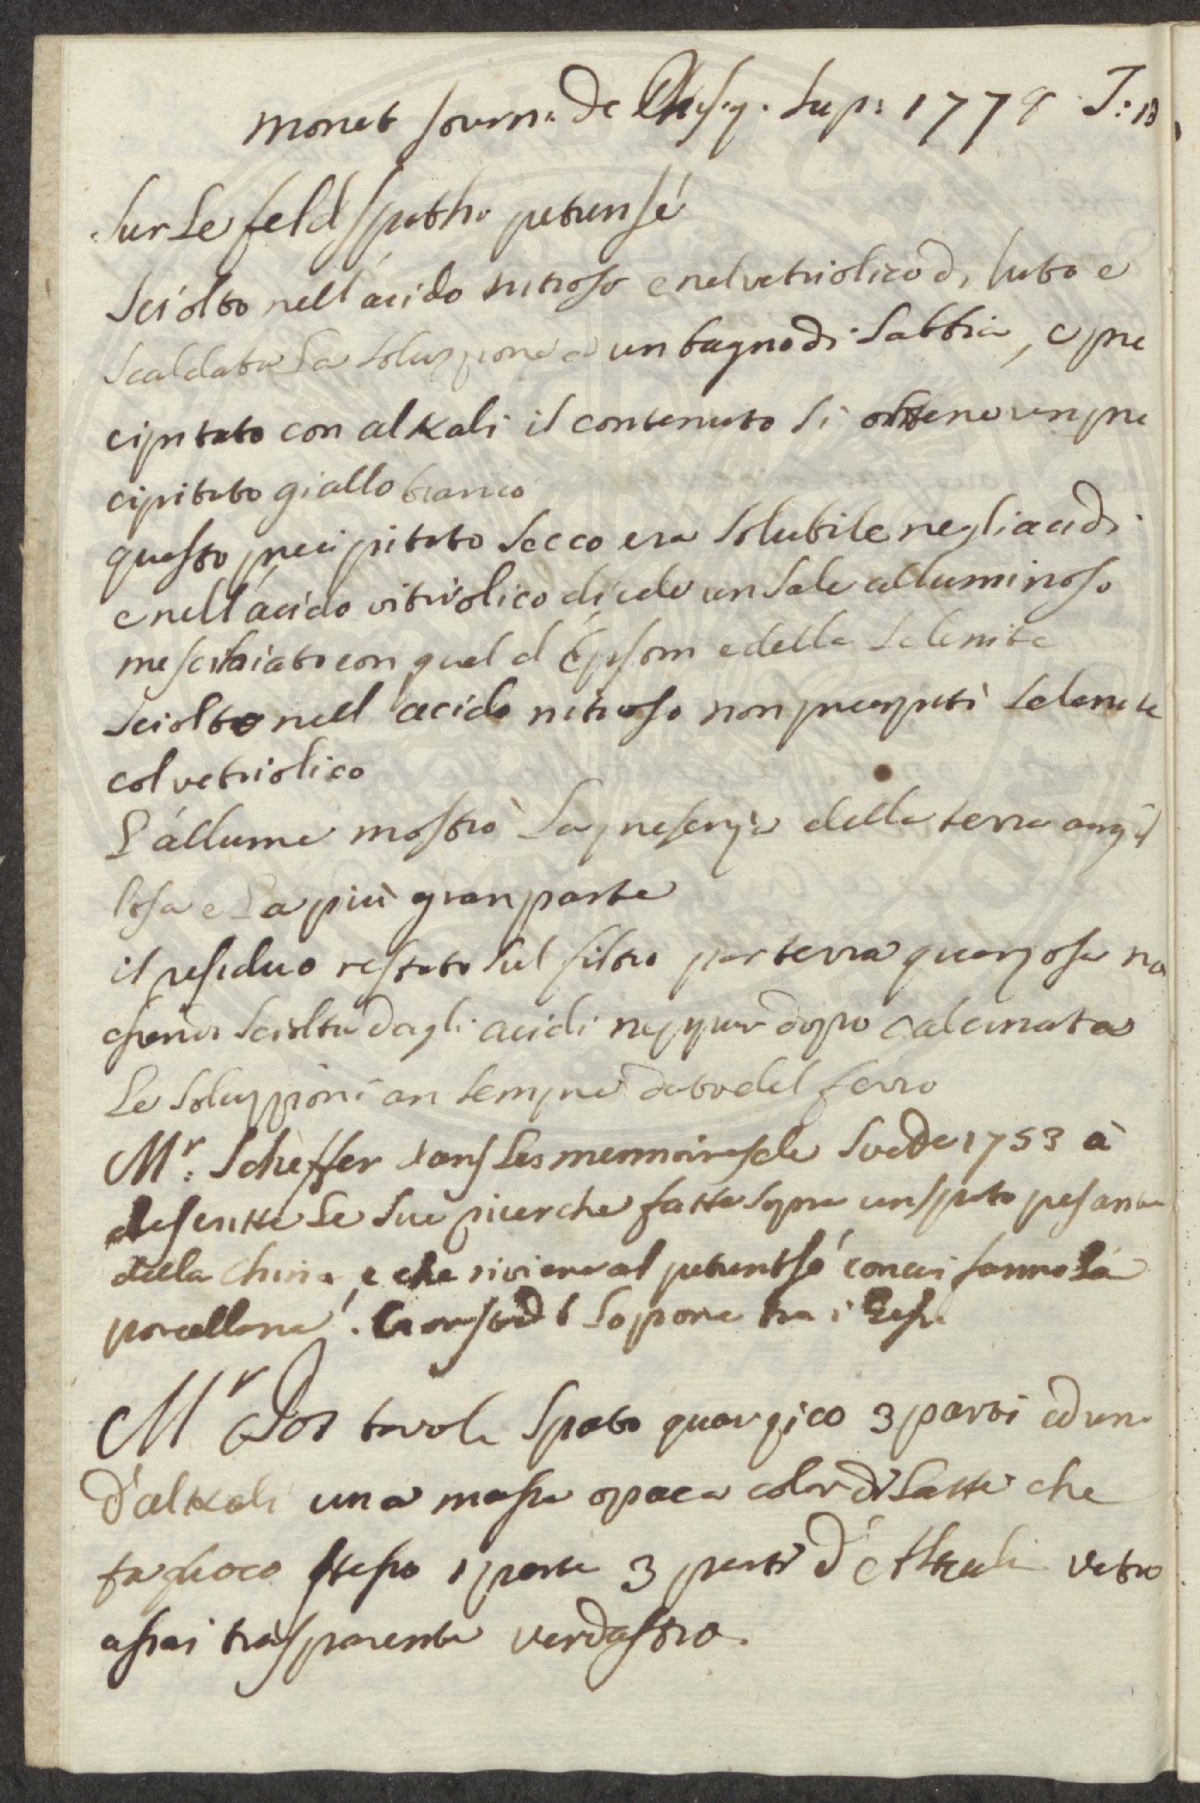 Monet Journ: de Phisiq. Sup: 1778 T: 13
Sur Le feld Spatho petunsé
Sciolto nell'acido nitroso e nel vetriolico diluto e
Scaldata La soluzzione a un bagno di Sabbia, e pre
cipitato con alkali il contenuto Si ottene un pre
cipitato giallo bianco
questo precipitato Secco era Solubile negli acidi
e nell'acido vitriolico diede un Sale alluminoso
meschiato con quel d'Epsom e della Selenite
Sciolto nell'acido nitroso non precipitì Selenite
col vetriolico
L'allume mostrò La presenza della terra argil
losa e La più gran parte
il residuo restato Sul filtro par terra quarzosa no
esendo Sciolta dagli acidi neppur dopo calcinata
Le Soluzzioni an Sempre dato del ferro
Mr: Scheffer dans Les memoires de Suede 1753 à
descritte Le Sue ricerche fatte Sopra un spato pesante
della China, e che riviene al petuntsé con cui fanno La
porcellana. Cronstedt Lo pone tra i
Mr Pot tavola Spato quarzico 3 parti ed una
d'alkali una massa opaca color di Latte che
fa fuoco stesso 1 parte 3 parti d'Alkali vetro
assai trasparente verdastro.